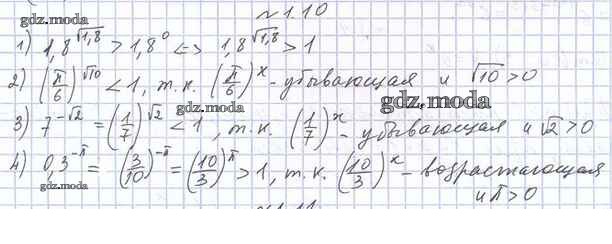 № 1.10
gdz.moda
1) 1,8^√1,8 > 1,8^0 <=> 1,8^√1,8 > 1
2) (π/6)^√10 < 1, т.к. (π/6)^x - убывающая и √10 > 0
gdz.moda gdz.moda
3) 7^-√2 = (1/7)^√2 < 1, т.к. (1/7)^x - убывающая и √2 > 0
4) 0,3^-π = (3/10)^-π = (10/3)^π > 1, т.к. (10/3)^x - возрастающая
gdz.moda
и π > 0